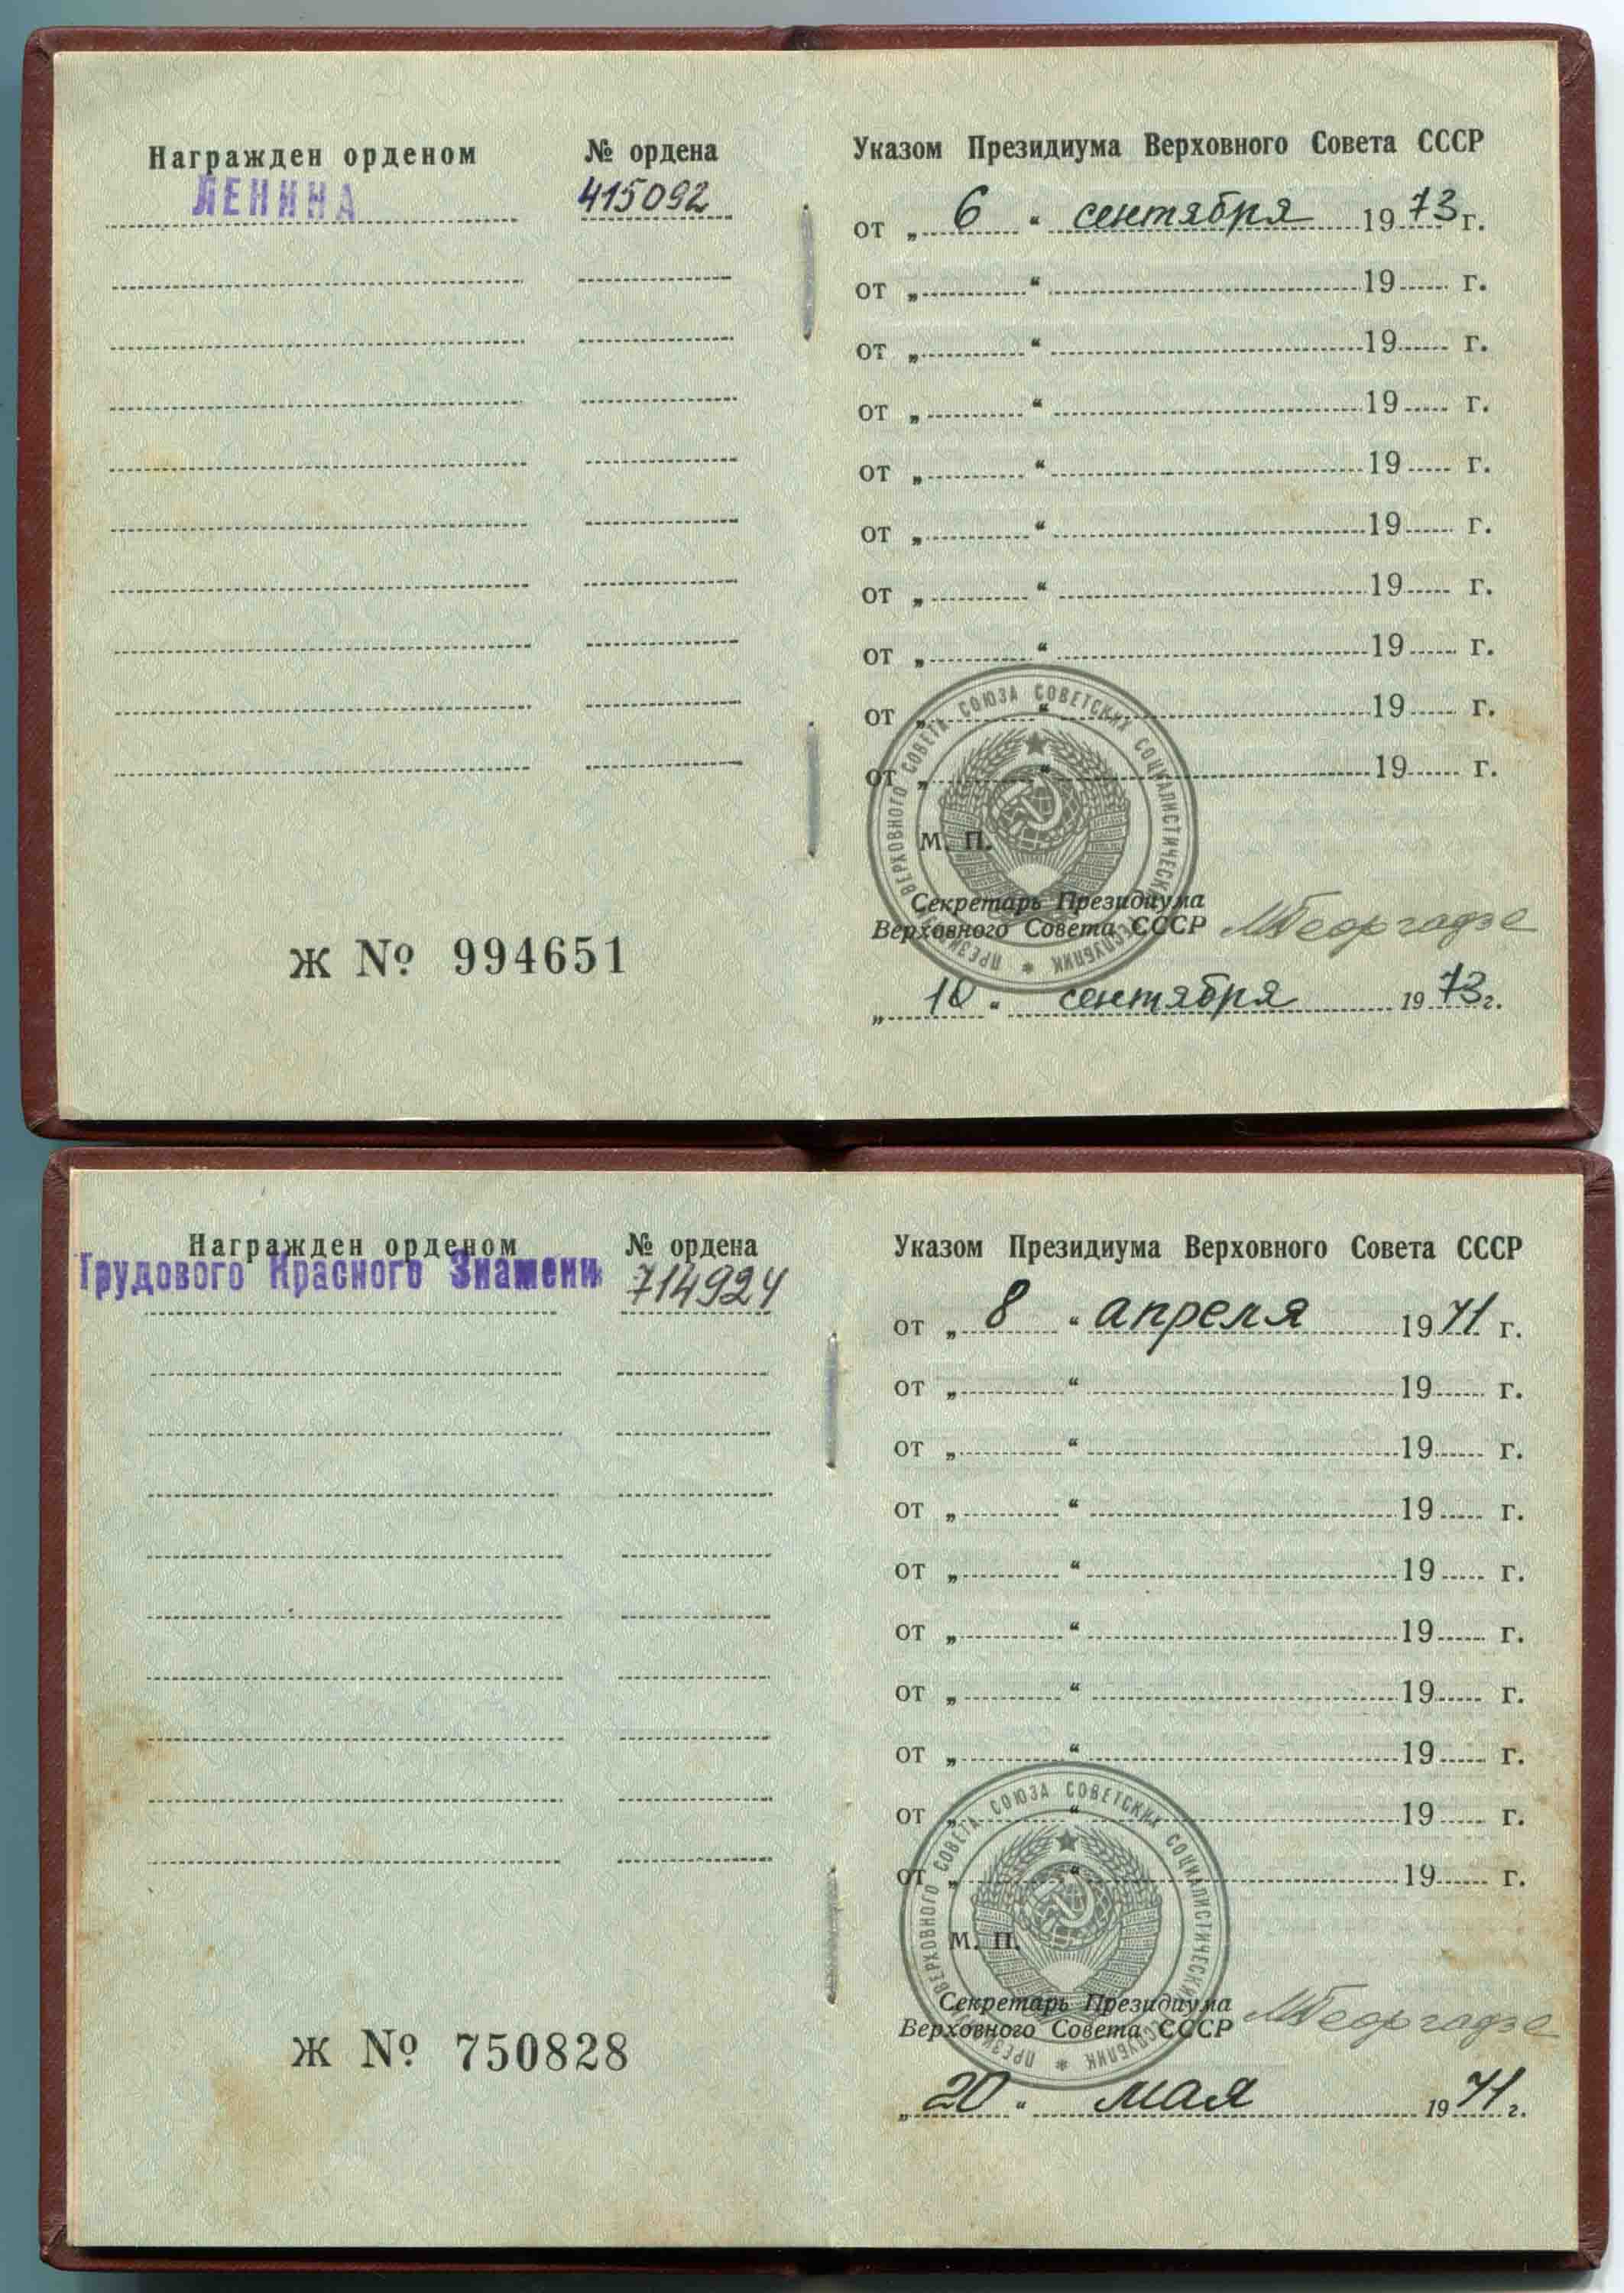 Награжден орденом № ордена
ЛЕНИНА 415092
Ж № 994651
Указом Президиума Верховного Совета СССР
от „ 6 “ сентября 1973 г.
от „ “ 19 г.
от „ “ 19 г.
от „ “ 19 г.
от „ “ 19 г.
от „ “ 19 г.
от „ “ 19 г.
от „ “ 19 г.
от „ “ 19 г.
от „ “ 19 г.
ПРЕЗИДИУМ ВЕРХОВНОГО СОВЕТА СОЮЗА СОВЕТСКИХ СОЦИАЛИСТИЧЕСКИХ РЕСПУБЛИК
М. П.
Секретарь Президиума
Верховного Совета СССР МГеоргадзе
„ 10 “ сентября 1973 г.
Награжден орденом № ордена
Трудового Красного Знамени 714924
Ж № 750828
Указом Президиума Верховного Совета СССР
от „ 8 “ апреля 1971 г.
от „ “ 19 г.
от „ “ 19 г.
от „ “ 19 г.
от „ “ 19 г.
от „ “ 19 г.
от „ “ 19 г.
от „ “ 19 г.
от „ “ 19 г.
от „ “ 19 г.
ПРЕЗИДИУМ ВЕРХОВНОГО СОВЕТА СОЮЗА СОВЕТСКИХ СОЦИАЛИСТИЧЕСКИХ РЕСПУБЛИК
М. П.
Секретарь Президиума
Верховного Совета СССР МГеоргадзе
„ 20 “ мая 1971 г.